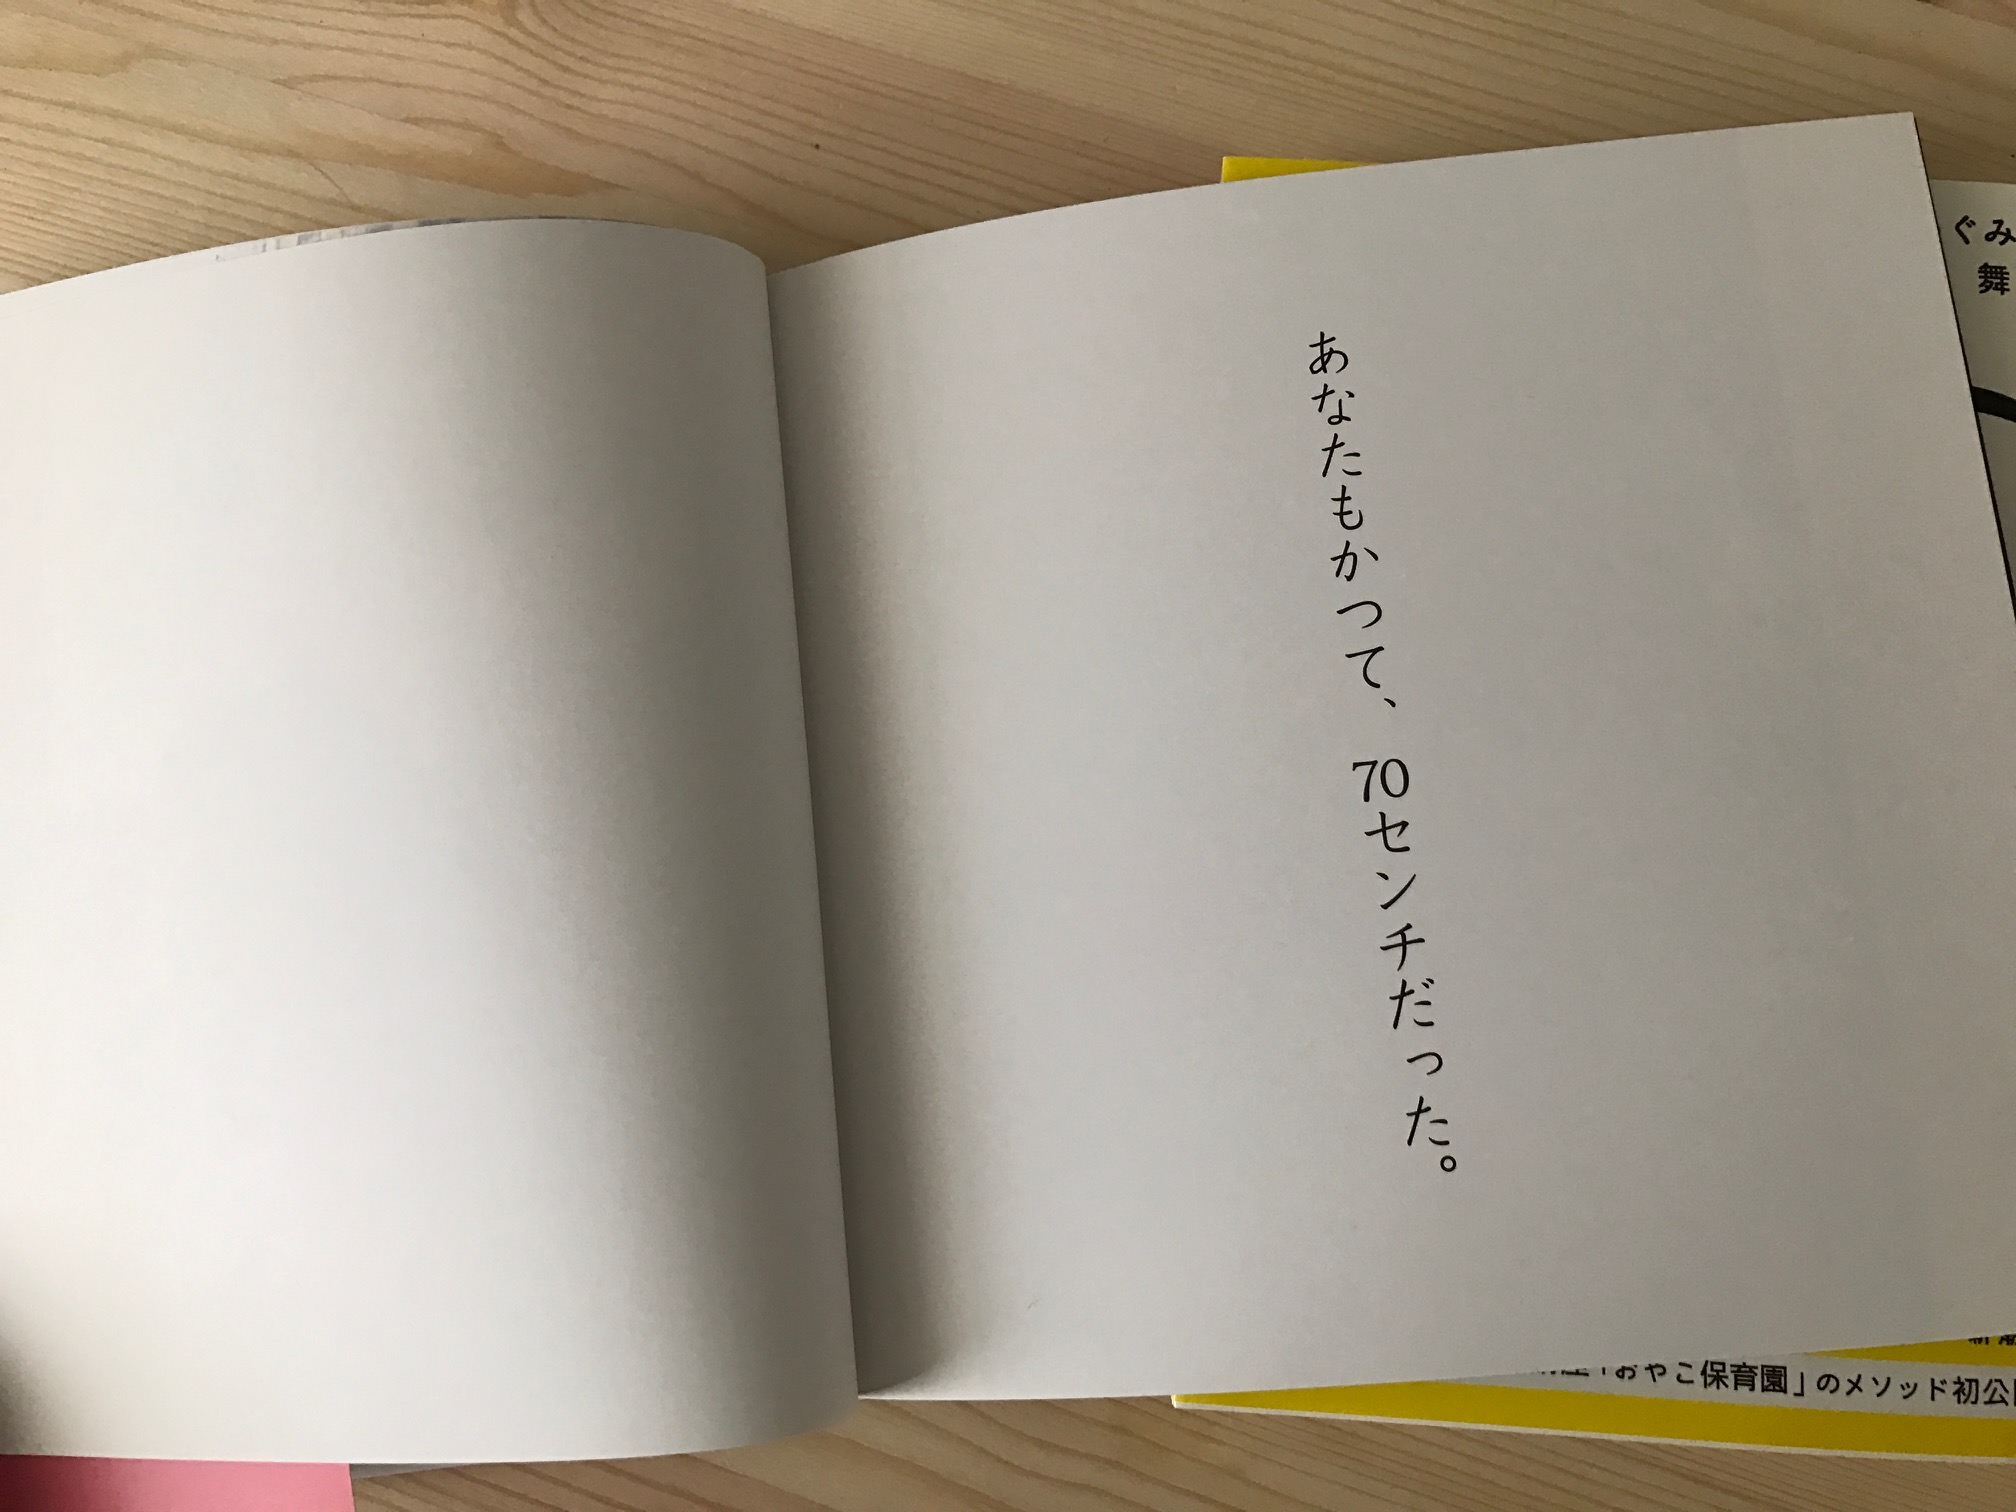 あなたもかつて、70センチだった。
ぐみ
舞
「おやこ保育園」のメソッド初公